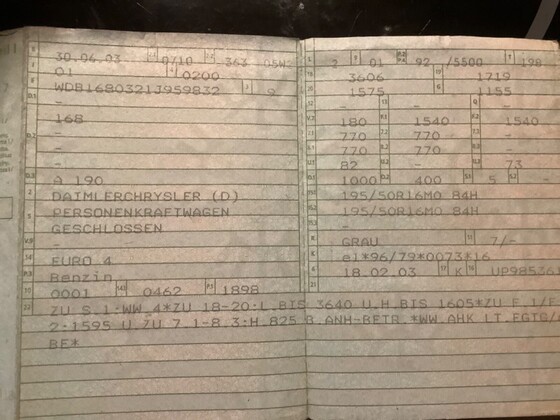 30.06.03 0/10 363
01 0200
WDB1680321J959832 9
-
168
-
-
-
A 190
DAIMLERCHRYSLER (D)
PERSONENKRAFTWAGEN
GESCHLOSSEN
-
EURO 4
Benzin
0001 0462 1898
2 01 92 /5500 198
3606 1719
1575 1155
- - -
180 1540 1540
770 770 -
770 770 -
82 - 73
1000 400 5 -
195/50R16MO 84H
195/50R16MO 84H
-
GRAU 7/-
e1*96/79*0073*16
18.02.03 K
ZU S.1:WW.4*ZU 18-20:L.BIS 3640 U.H.BIS 1605*ZU F.1/F.
2:1595 U.ZU 7.1-8.3:H.825 B.ANH-BETR.*WW.AHK LT.EGTG/
BE*